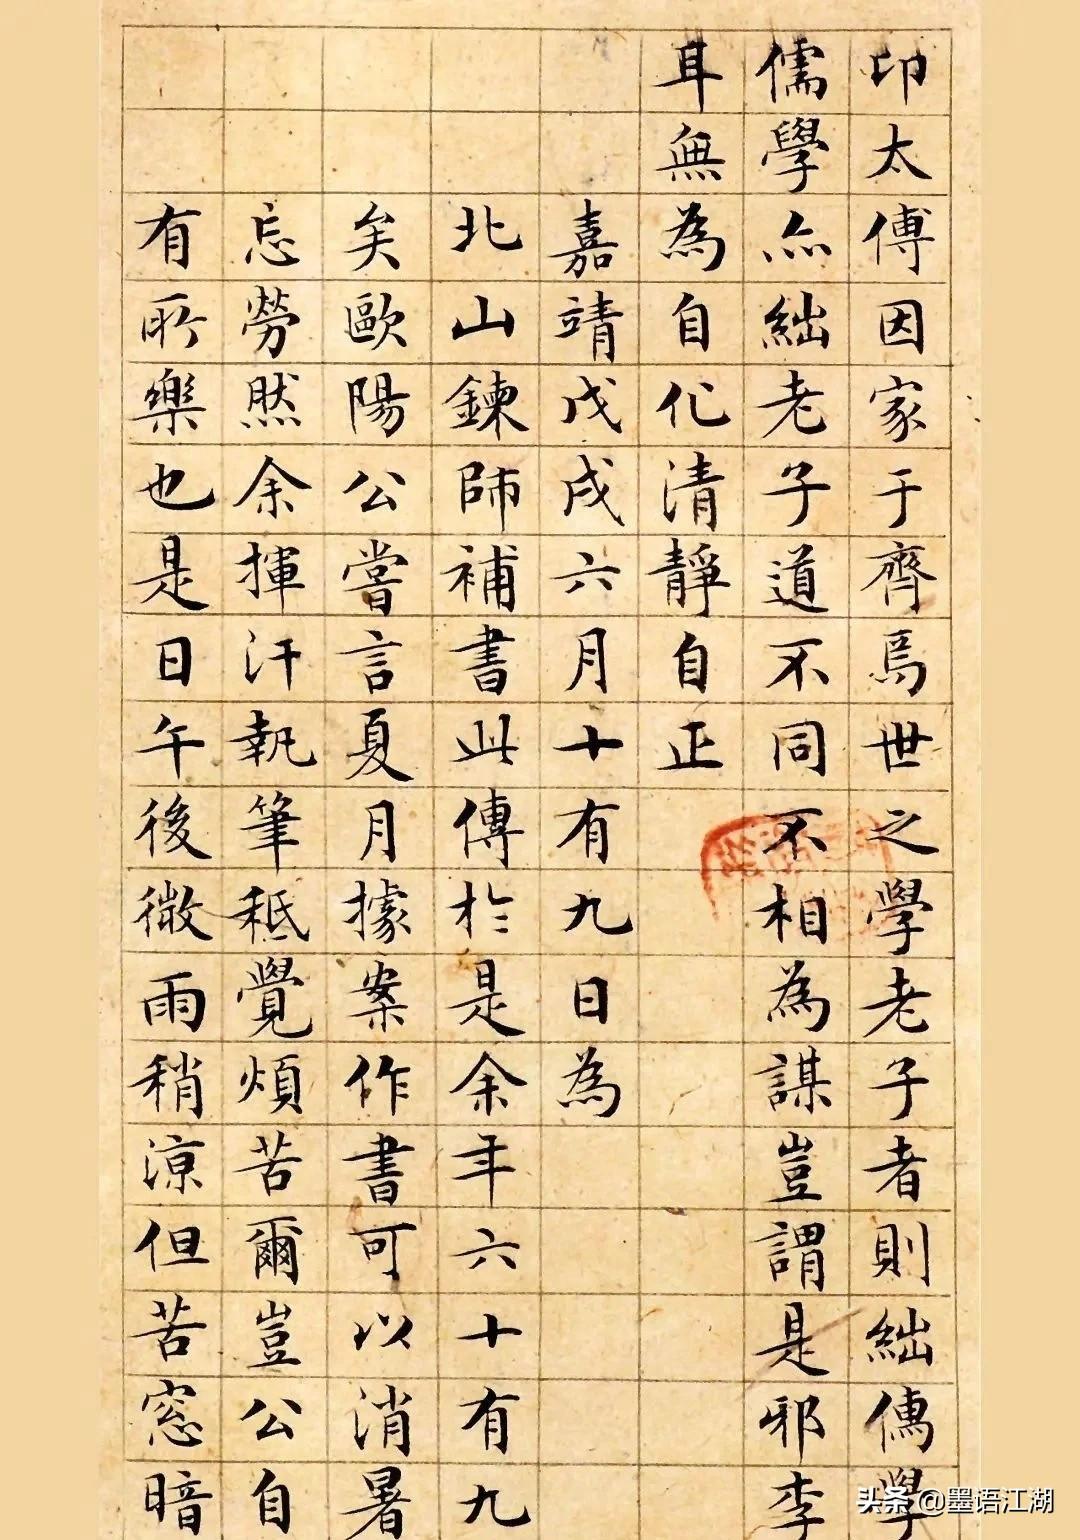 印太傅因家于齊焉世之學老子者則絀儒學
儒學亦絀老子道不同不相為謀豈謂是邪李
耳無為自化清靜自正
嘉靖戊戌六月十有九日為
北山鍊師補書此傳於是余年六十有九
矣歐陽公嘗言夏月據案作書可以消暑
忘勞然余揮汗執筆秪覺煩苦爾豈公自
有所樂也是日午後微雨稍涼但苦窓暗
头条 @墨语江湖